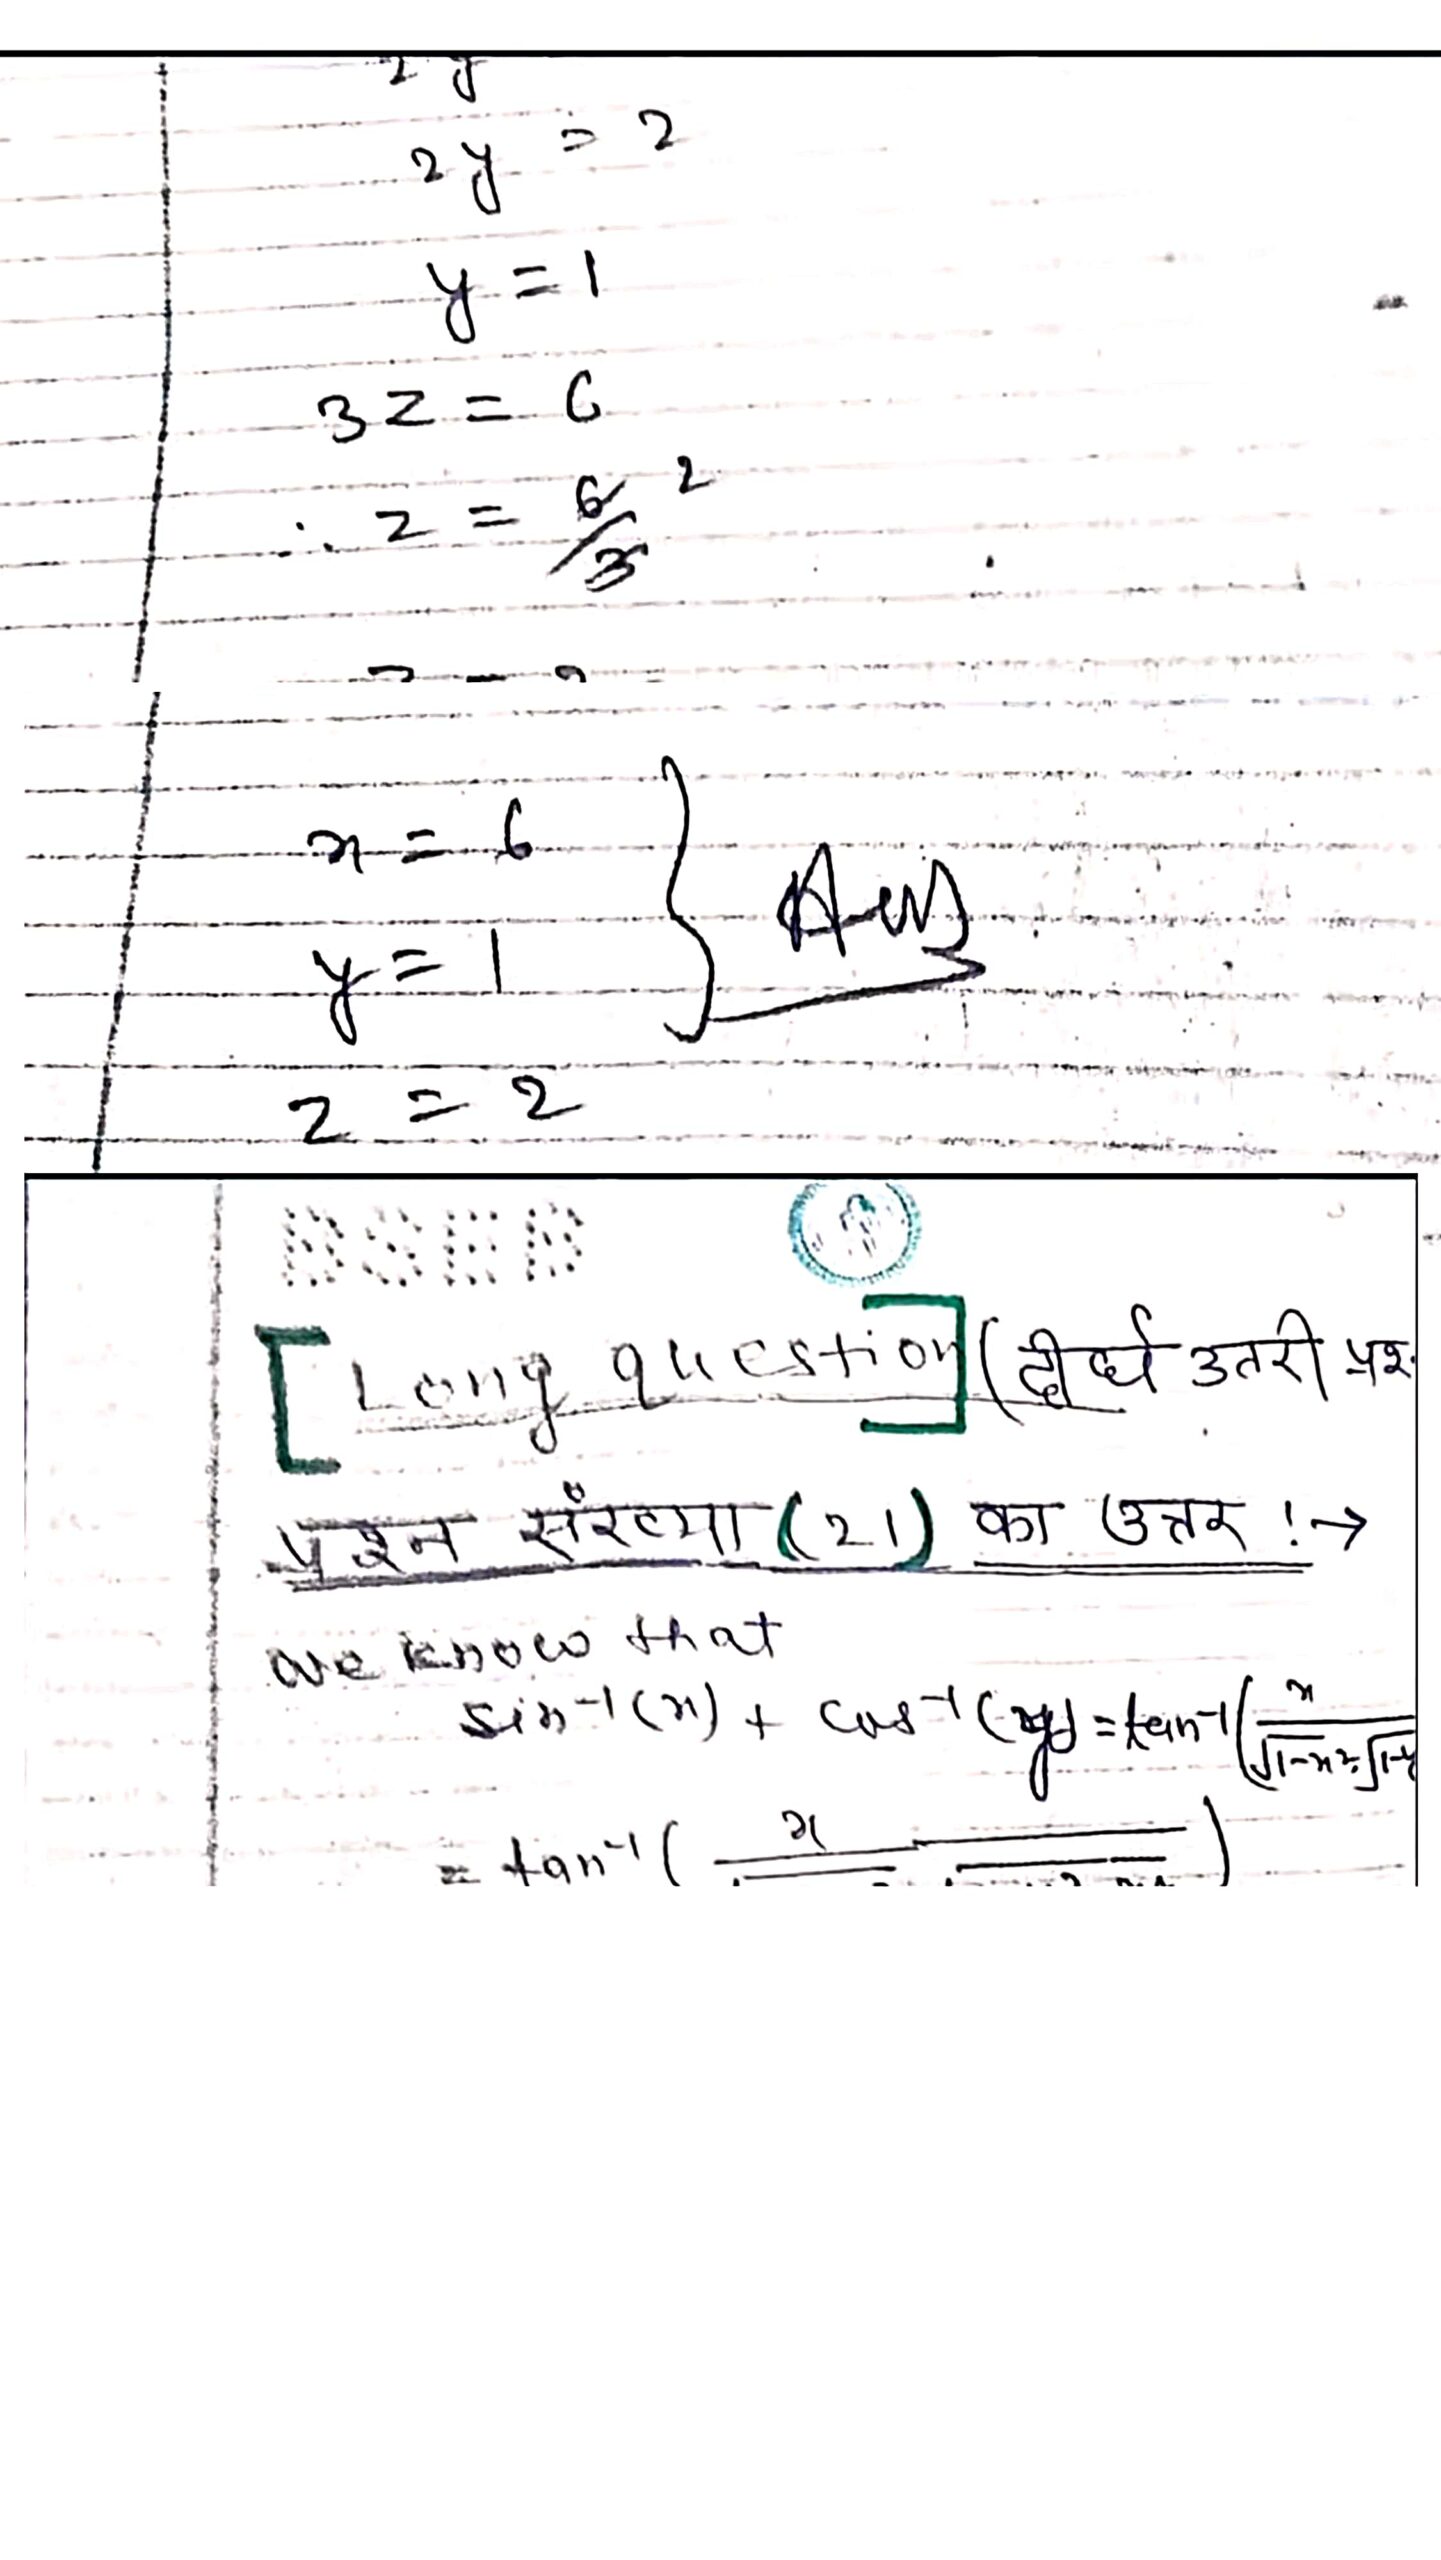 2y
2y = 2
y = 1
3z = 6
∴ z = 6/3 2
x = 6
y = 1
z = 2
} Ans
BSEB
[Long question] (दीर्घ उतरी प्रश
प्रश्न संख्या (21) का उत्तर :→
we know that
sin⁻¹(x) + cos⁻¹(y) = tan⁻¹(x/√1-x²·√1-y
= tan⁻¹( x